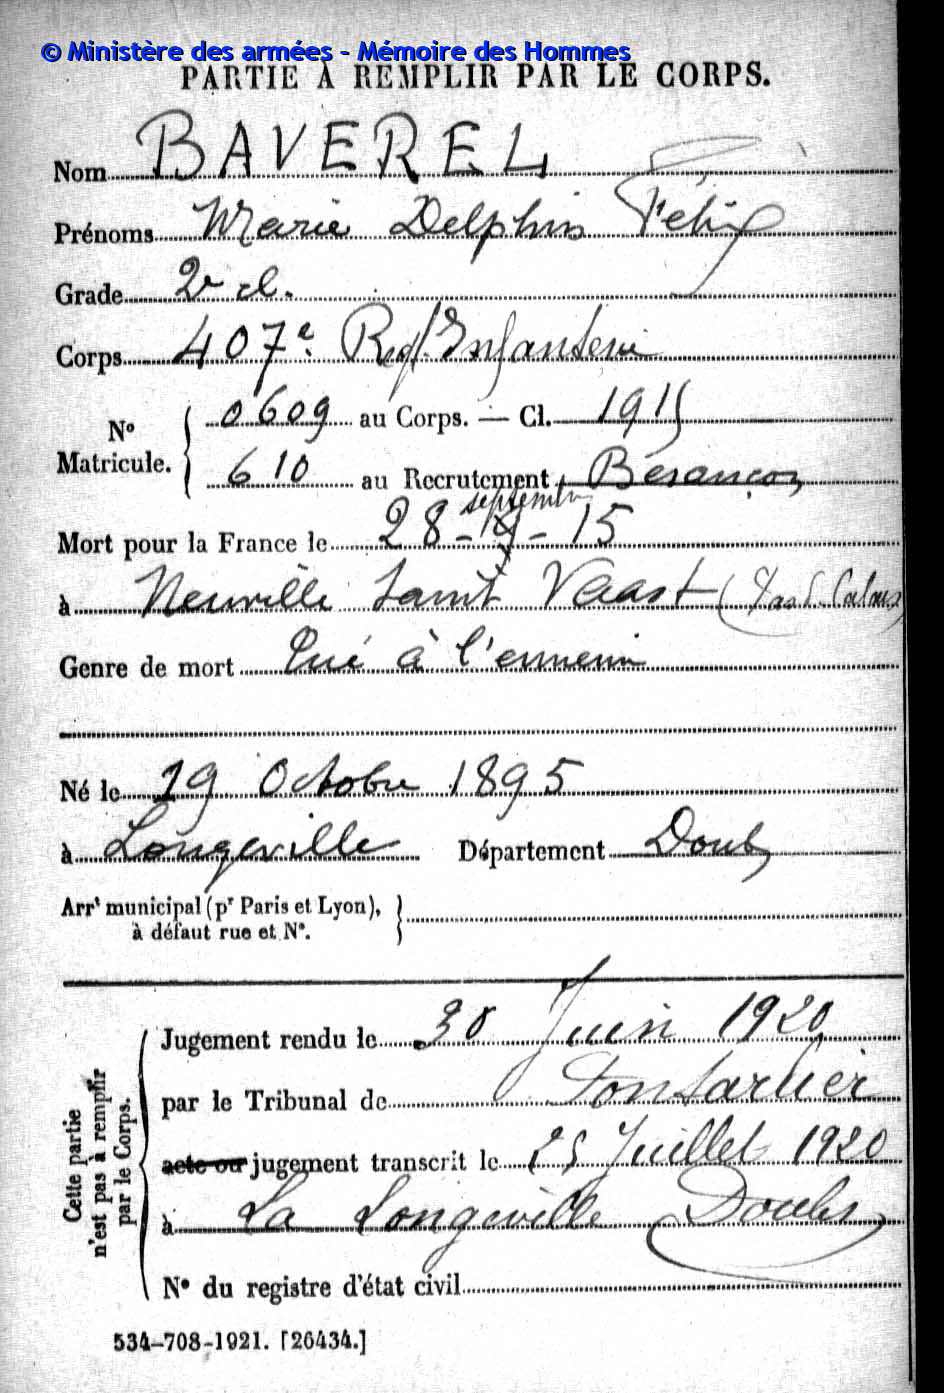 © Ministère des armées - Mémoire des Hommes
PARTIE À REMPLIR PAR LE CORPS.
Nom BAVEREL
Prénoms Marie Delphin Félix
Grade 2e cl.
Corps 407e Regt Infanterie
No Matricule. { 0609 au Corps. — Cl. 1915
610 au Recrutement Besançon
septembre
Mort pour la France le 28 - 9 - 15
à Neuville Saint Vaast (Pas d. Calais)
Genre de mort Tué à l'ennemi
Né le 19 Octobre 1895
à Longeville Département Doubs
Arrt municipal (pr Paris et Lyon),
à défaut rue et No.
Cette partie
n'est pas à remplir
par le Corps.
Jugement rendu le 30 Juin 1920
par le Tribunal de Pontarlier
acte ou jugement transcrit le 25 Juillet 1920
à La Longeville Doubs
No du registre d'état civil
534-708-1921. [26434.]